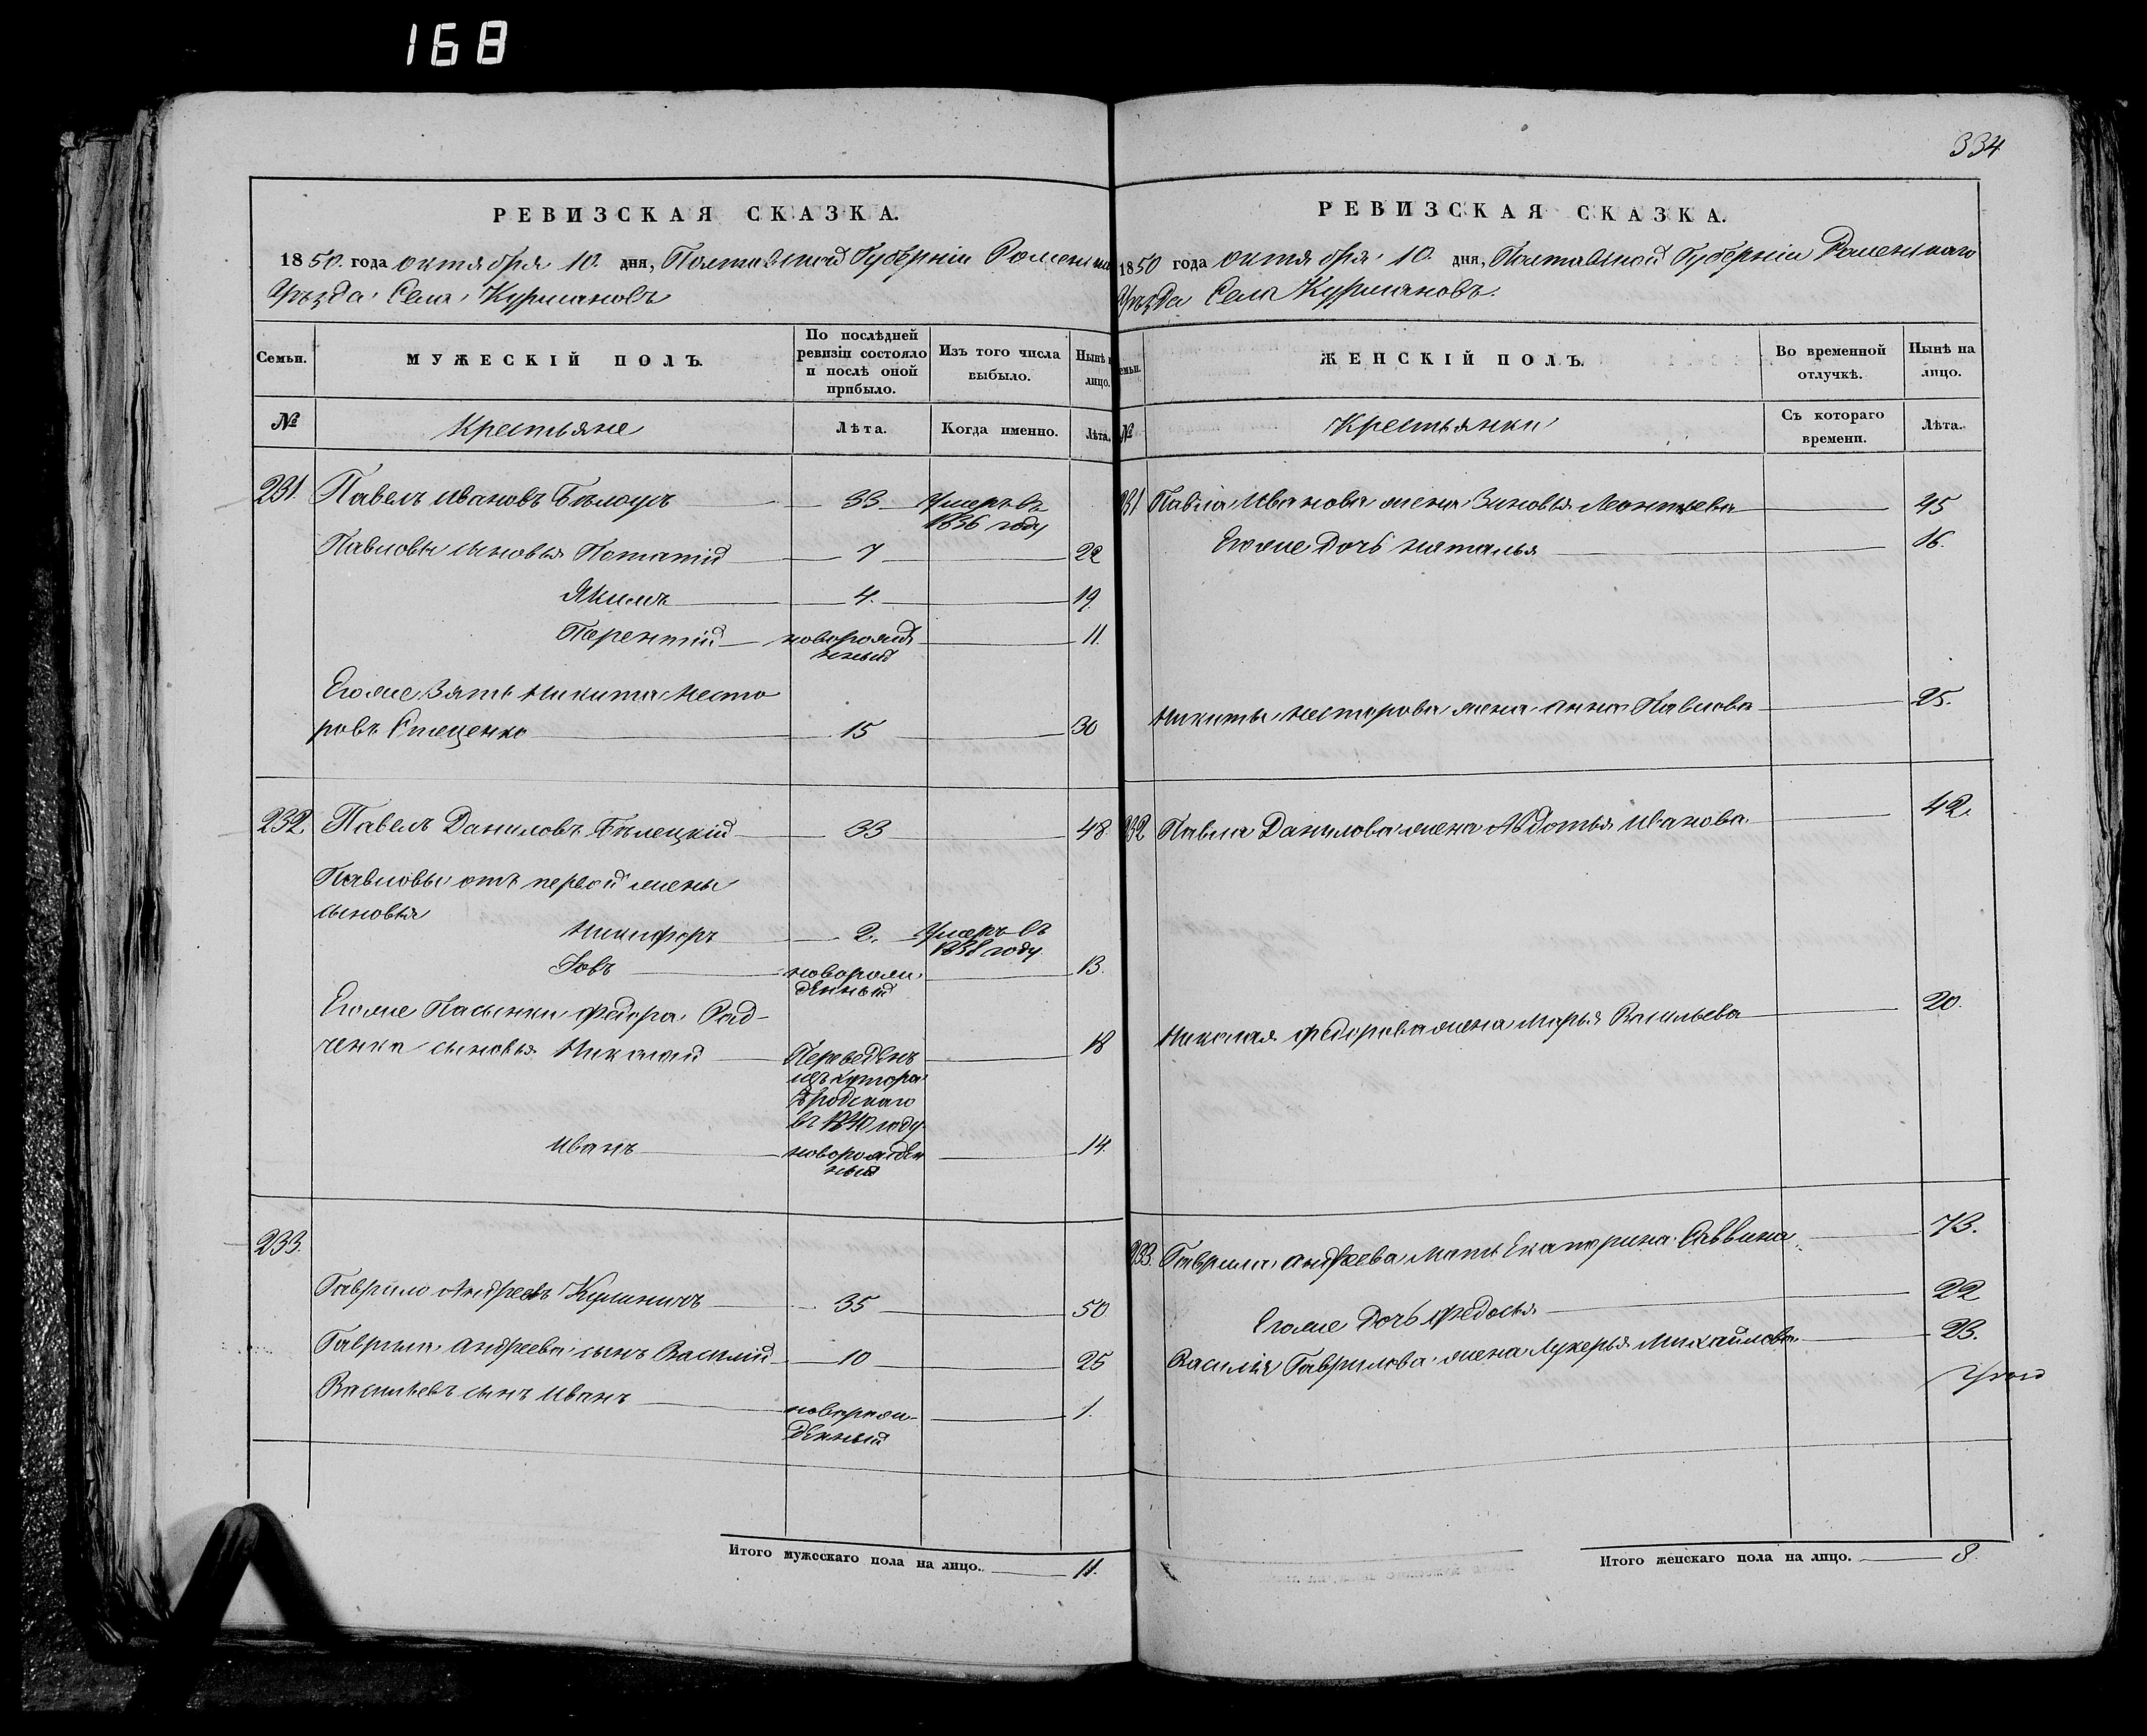 168
РЕВИЗСКАЯ СКАЗКА.
1850. года октября 10. дня, Полтавской Губерніи Роменска
Уѣзда, Села, Курмановъ
Семьи.
МУЖЕСКІЙ ПОЛЪ.
По послѣдней ревизіи состояло и послѣ оной прибыло.
Изъ того числа выбыло.
Нынѣ н лицо.
№
Крестьяне
Лѣта.
Когда именно.
Лѣта.
231. Павелъ Ивановъ Бѣлоусъ 33 Умеръ въ
1836 году
Павловы сыновья Потапій 7 22
Якимъ 4. 19.
Терентій новорожд 11.
енный
Егоже Зять Никита Несто
ровъ Стеценко 15 30
232. Павелъ Даниловъ Бѣлецкій 33 48
Павловы отъ первой жены
сыновья
Никифоръ 2. Умеръ въ
1838 году.
Іовъ новорож 13.
денный
Егоже Пасынки Федора Рад-
ченка сыновья Николай Переведенъ 18
изъ хутора
въ 1840 году
Иванъ новорожден 14.
ный
233.
Гаврило Андреевъ Кулиничъ 35 50
Гаврила Андреева сынъ Василій 10 25
Васильевъ сынъ Иванъ новорож- 1.
денный
Итого мужескаго пола на лицо. 11.
334
РЕВИЗСКАЯ СКАЗКА.
1850 года октября 10. дня, Полтавской Губерніи Роменскаго
Уѣзда Села Курмановъ.
емьи.
ЖЕНСКІЙ ПОЛЪ.
Во временной отлучкѣ.
Нынѣ на лицо.
№
Крестьянки
Съ котораго времени.
Лѣта.
231 Павла Иванова жена Зиновья Леонтьева 45
Егоже дочь Наталья 16.
Никиты Нестерова жена Анна Павлова 25.
232 Павла Данилова жена Авдотья Иванова. 42.
Николая Федорова жена Марья Васильева 20.
233. Гаврила Андреева Мать Екатерина Саввина 73.
Егоже дочь Федосья 22
Василія Гаврилова жена Лукерья Михайлова. 23.
Итого женскаго пола на лицо. 8.